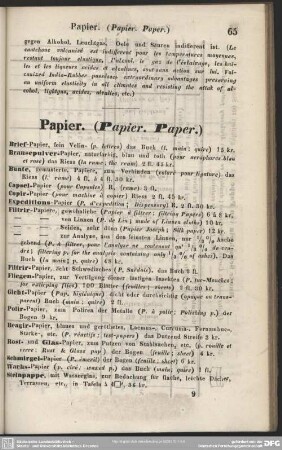 Papier. (Papier. Paper.) 65
gegen Alkohol, Leuchtgas, Oele und Säuren indifferent ist. (Le
caoutchouc vulcanisé est indifférent pour les températures moyennes,
restant toujours élastique, l'alcool, le gaz de l'éclairage, les hui-
les et les liqueurs acides et alcalines, sont sans action sur lui. Vul-
canized India-Rubber possesses extraordinary advantages preserving
an uniform elasticity in all climates and resisting the attak of al-
cohol, lightgas, acides, alcalies, etc.)
Papier. (Papier. Paper.)
Brief-Papier, fein Velin- (p. lettres) das Buch (l. main; quire) 12 kr.
Brausepulver-Papier, naturfarbig, blau und roth (pour aerophores bleu
et rose) das Riess (la rame; the ream) 2 fl. 45 kr.
Bunte, ordinärste, Papiere, zum Verbinden
das Riess (l. rame) 4 fl. à 4 fl. 30 kr.
Capsel-Papier (pour Capsules) R. (rame) 3 fl.
Copir-Papier (pour machine à copier) Riess 2 fl. 45 kr.
Expeditions-Papier (P. d'expedition; R. 2 fl. 30 kr.
Filtrir-Papiere, gewöhnliche (Papier à filtrer; filtring Paper) 6 à 8 kr.
von Linnen (P. de Lin; made of Linnen cloths) 10 kr.
Seiden, sehr dünn (Papier Joseph; Silk paper) 12 kr.
zur Analyse, aus den feinsten Linnen, nur Asche
gebend (P. à filtrer, pour l'analyse ne contenant qu' de cen-
dre; filtring p. for the analysis containing only of ashes). Das
Buch (la main; quire) 48 kr.
Filtrir-Papier, ächt Schwedisches (P. Suédois), das Buch 2 fl.
Fliegen-Papier, zur Vertilgung dieser lästigen Insekten (P. tue-Mouches;
for ratstroying flies) 100 Blätter (feuilles; sheets) 2 fl. 30 kr.
Gicht-Papier (Pap. dick oder durchsichtig (opaque ou trans-
parent) Buch (main; quire) 2 fl.
Polir-Papier, zum Poliren der Metalle (P. à polir; Polishing p.) der
Bogen 9 kr.
Reagir-Papier, blaues und geröthetes, Lacmus-, Curcuma-, Fernambuc-,
Stärke-, etc. (P. réactifs; test-papers) das Dutzend Streife 3 kr.
Rost- und Glas-Papier, zum Putzen von Stahlsachen, etc. (p. rouille et
verre; Rust & Glass pap.) der Bogen (feuille; sheet) 4 kr.
Schmirgel-Papier (P. émeril) der Bogen (feuille; sheet) 6 kr.
Wachs-Papier (p. ciré; waxed p.) das Buch (main; quire) 1 fl.
Steinpappe, mit Wasserglas, zur Bedachung für flache, leichte Dächer,
Terrassen, etc., in Tafeln à 36 kr.
9